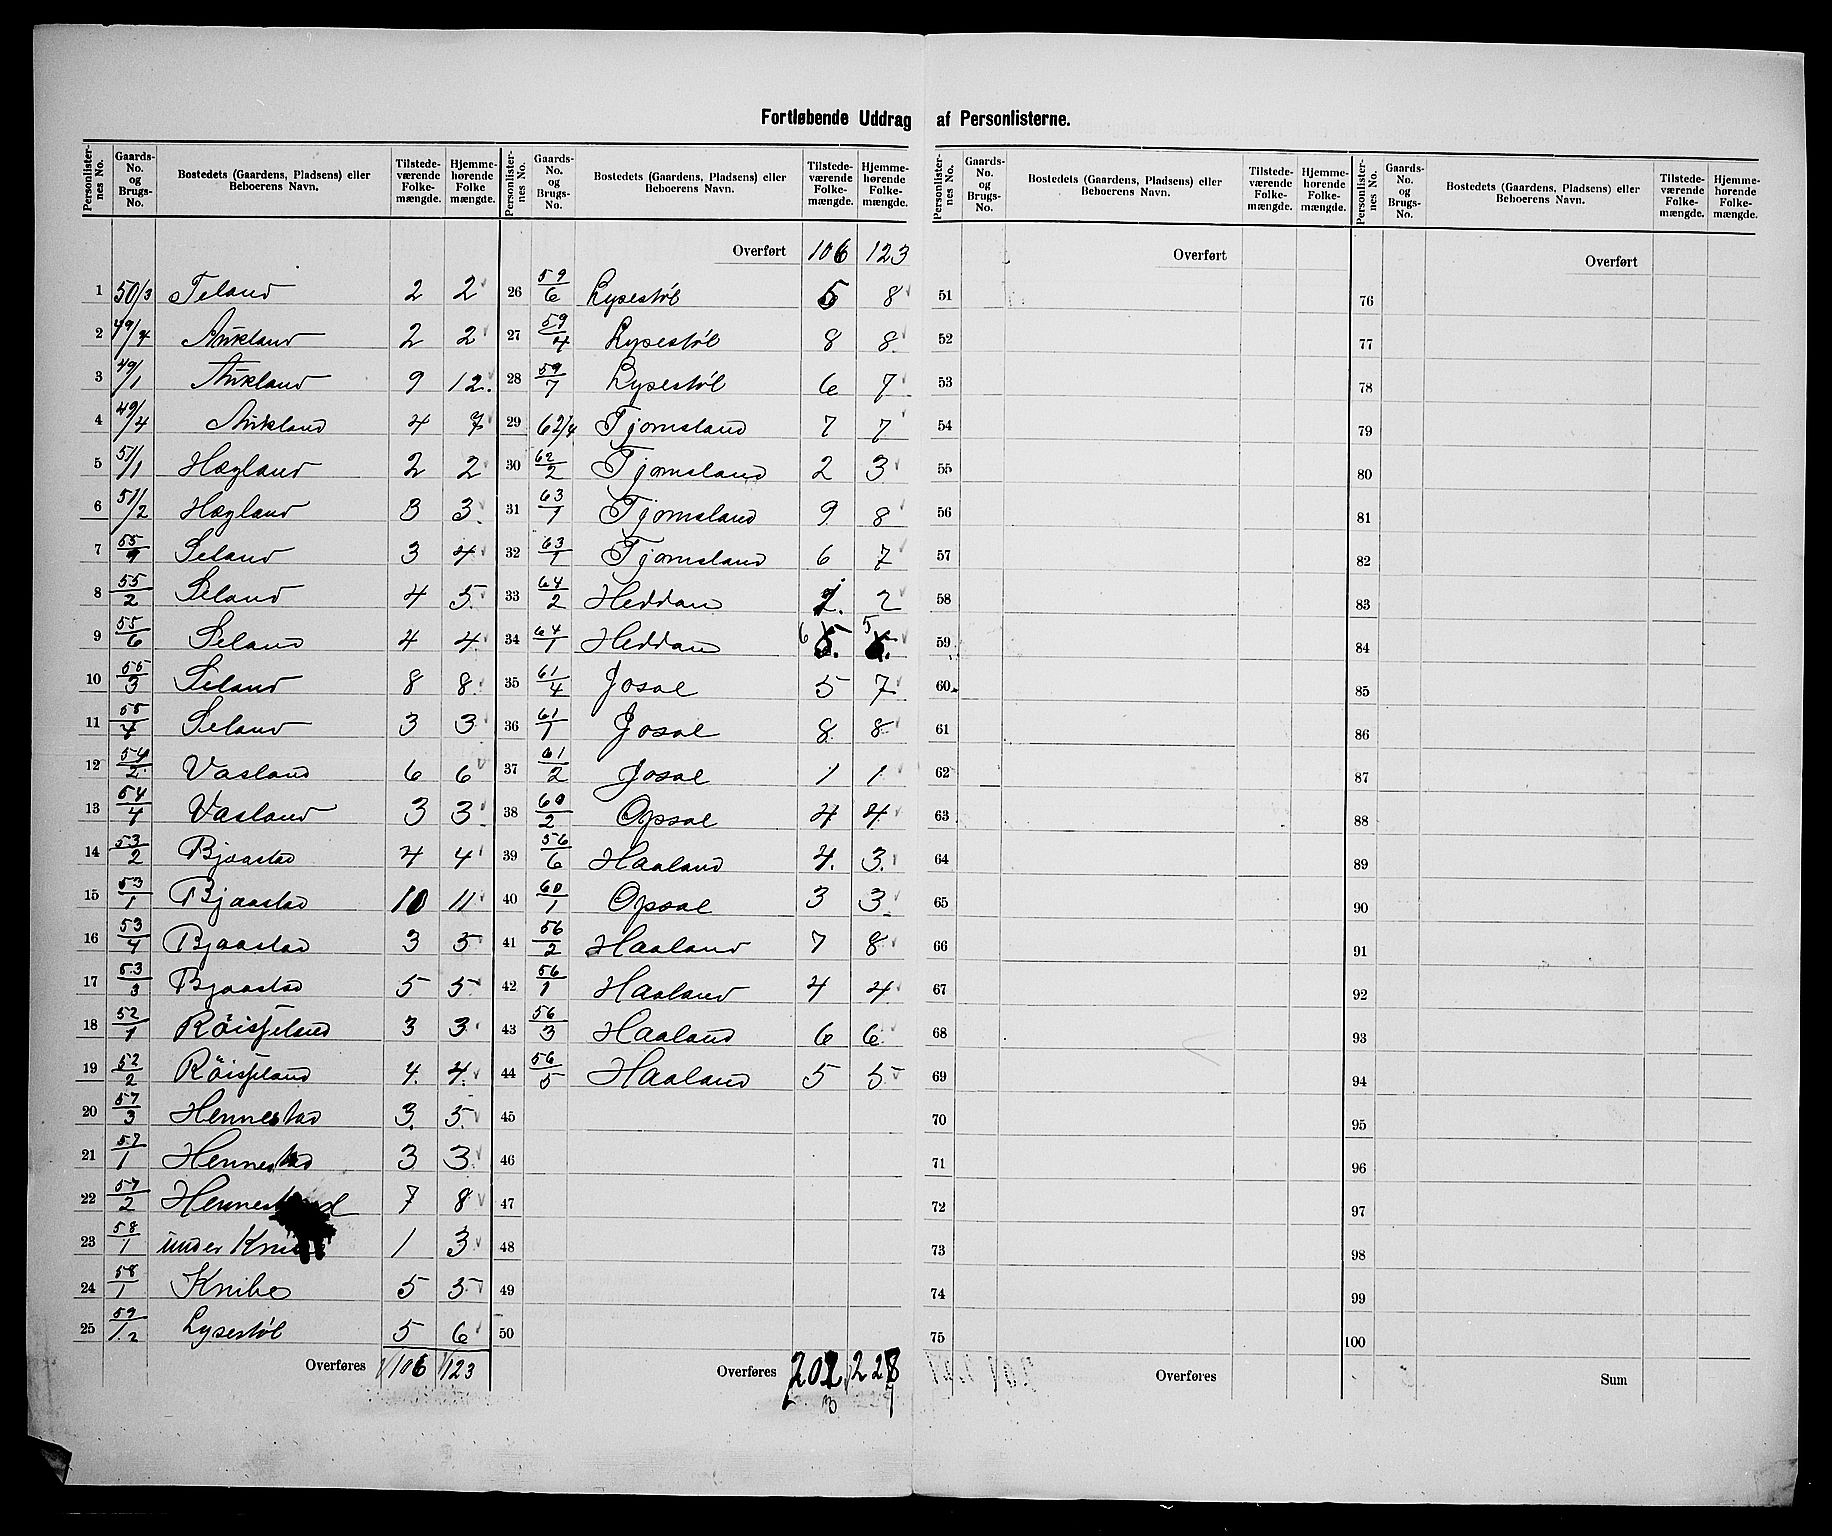 Fortløbende Uddrag af Personlisterne.
Personlister-nes No. | Gaards-No. og Brugs-No. | Bostedets (Gaardens, Pladsens) eller Beboerens Navn. | Tilstede-værende Folke-mængde. | Hjemme-hørende Folke mængde.
1 50/3 Teland 2 2
2 49/4 Aukland 2 2
3 49/1 Aukland 9 12.
4 49/4 Aukland 4 7
5 51/1 Hægland 2 2
6 51/2 Hægland 3 3.
7 55/9 Seland 3 4
8 55/2 Seland 4 5
9 55/6 Seland 4 4
10 55/3 Seland 8 8
11 55/4 Seland 3 3
12 54/2 Vasland 6 6
13 54/4 Vasland 3 3
14 53/2 Bjaastad 4 4
15 53/1 Bjaastad 10 11
16 53/4 Bjaastad 3 5
17 53/3 Bjaastad 5 5
18 52/1 Røisfeland 3 3
19 52/2 Røisfeland 4. 4.
20 57/3 Hennestad 3. 5.
21 57/1 Hennestad 3 3
22 57/2 Hennestad 7 8
23 58/1 under 1 3
24 58/1 Knibe 5 5
25 59/1.2 Lysestøl 5 6
Overføres 106 123
Personlister-nes No. | Gaards-No. og Brugs-No. | Bostedets (Gaardens, Pladsens) eller Beboerens Navn. | Tilstede-værende Folke-mængde. | Hjemme-hørende Folke-mængde.
Overført 106 123
26 59/6 Lysestøl 5 8
27 59/4 Lysestøl 8 8.
28 59/7 Lysestøl 6 7
29 62/4 Tjomsland 7 7
30 62/2 Tjomsland 2 3
31 63/1 Tjomsland 9 8
32 63/1 Tjomsland 6 7
33 64/2 Heddan 2
34 64/1 Heddan 6 5
35 61/4 Josal 5 7
36 61/1 Josal 8 8
37 61/2 Josal 1 1
38 60/2 Opsal 4 4
39 56/6 Haaland 4. 3.
40 60/1 Opsal 3 3
41 56/2 Haaland 7 8
42 56/1 Haaland 4 4
43 56/3 Haaland 6 6
44 56/5 Haaland 5 5
45
46
47
48
49
50
Overføres
Personlister-nes No. | Gaards-No. og Brugs-No. | Bostedets (Gaardens, Pladsens) eller Beboerens Navn. | Tilstede-værende Folke-mængde. | Hjemme-hørende Folke-mængde.
Overført
51
52
53
54
55
56
57
58
59
60
61
62
63
64
65
66
67
68
69
70
71
72
73
74
75
Overføres
Personlister-nes No. | Gaards-No. og Brugs-No. | Bostedets (Gaardens, Pladsens) eller Beboerens Navn. | Tilstede-værende Folke-mængde. | Hjemme-hørende Folke-mængde.
Overført
76
77
78
79
80
81
82
83
84
85
86
87
88
89
90
91
92
93
94
95
96
97
98
99
100
Sum